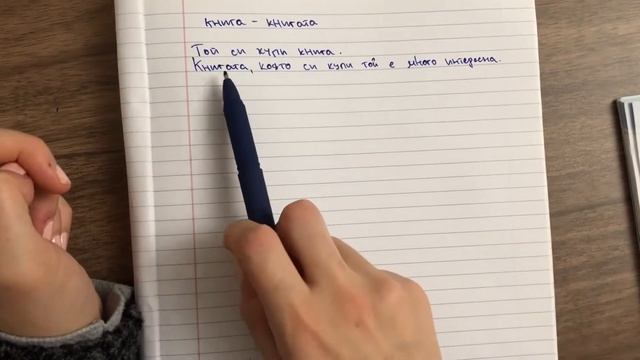 книга - книгата
Той си купи книга.
Книгата, която си купи той е много интересна.